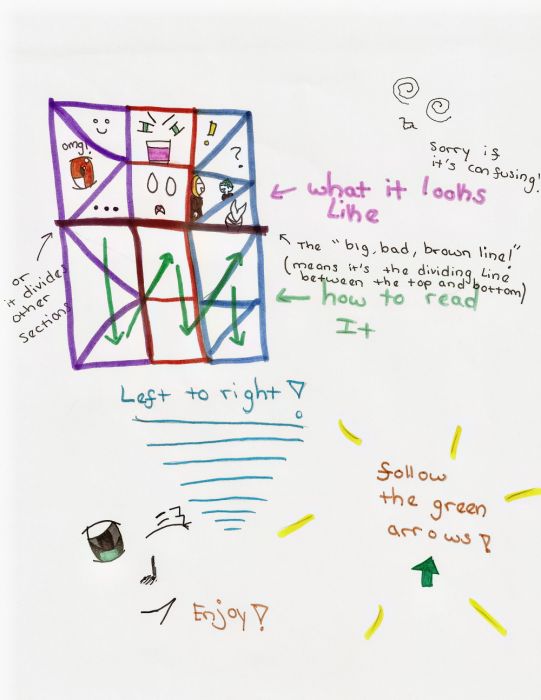 omg!
!
?
...
Sorry if
it's confusing!
what it looks
Like
The "big, bad, brown line!"
(means it's the dividing line
between the top and bottom)
or
it divides
other
sections
how to read
It
Left to right!
follow
the green
arrows!
Enjoy!